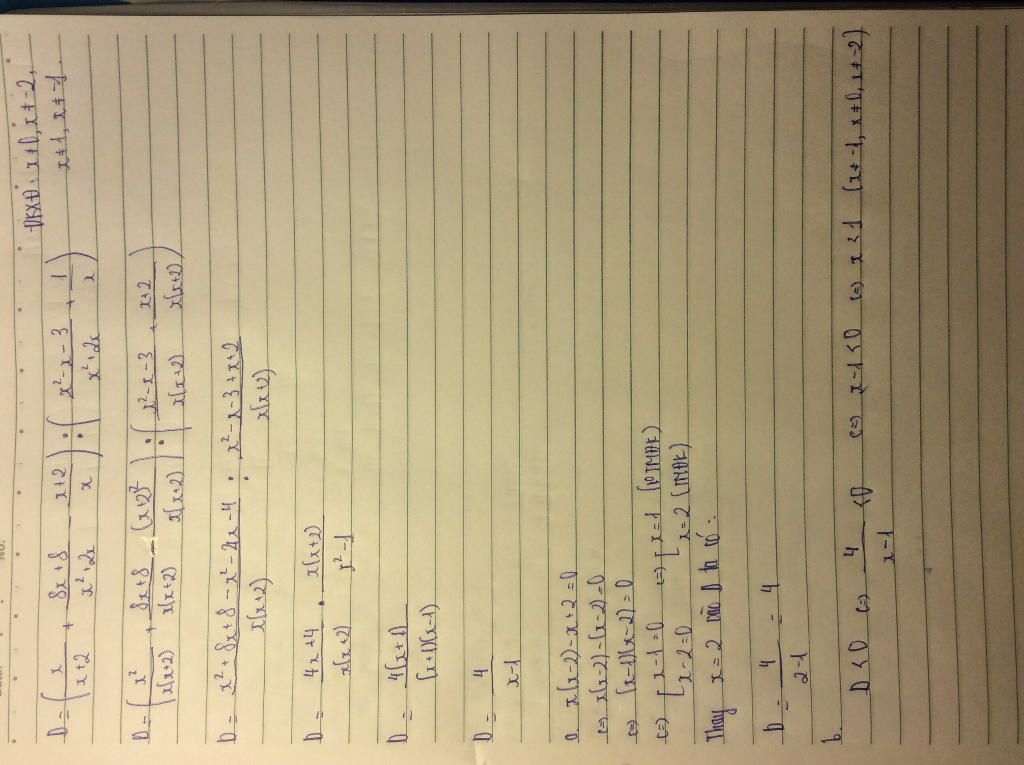 D = (x/(x+2) + (8x+8)/(x²+2x) - (x+2)/x) : ((x²-x-3)/(x²+2x) + 1/x) ĐKXĐ: x≠0, x≠-2,
x≠1, x≠-1.
D = (x²/(x(x+2)) + (8x+8)/(x(x+2)) - (x+2)²/(x(x+2))) : ((x²-x-3)/(x(x+2)) + (x+2)/(x(x+2)))
D = (x²+8x+8-x²-4x-4)/(x(x+2)) : (x²-x-3+x+2)/(x(x+2))
D = (4x+4)/(x(x+2)) . (x(x+2))/(x²-1)
D = 4(x+1)/((x+1)(x-1))
D = 4/(x-1)
a x(x-2)-x+2=0
(=) x(x-2)-(x-2)=0
(=) (x-1)(x-2)=0
(=) [x-1=0 (=) [x=1 (KTMĐK)
x-2=0 x=2 (TMĐK)
Thay x=2 vào D ta có:
D = 4/(2-1) = 4
b.
D<0 (=) 4/(x-1) <0 (=) x-1<0 (=) x<1 (x≠-1, x≠0, x≠-2)